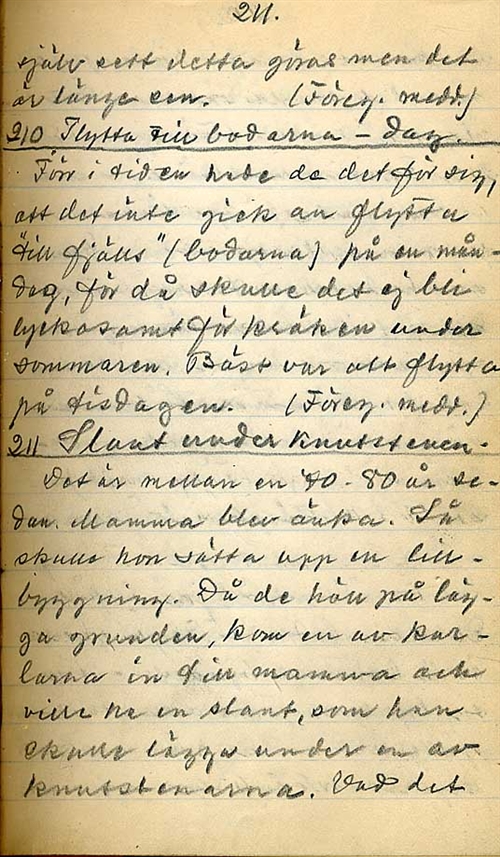 211.
själv sett detta göras men det
är länge sen. (Föreg. medd.)
210 Flytta till bodarna - dag.
Förr i tiden hade de det för sig,
att det inte gick an flytta
"till fjälls" (bodarna) på en mån-
dag, för då skulle det ej bli
lyckosamt för kräken under
sommaren. Bäst var att flytta
på tisdagen. (Föreg. medd.)
211 Slant under knutstenen.
Det är mellan en 70-80 år se-
dan. Mamma blev änka. Så
skulle hon sätta upp en lill-
byggning. Då de höll på läg-
ga grunden, kom en av kar-
larna in till mamma och
ville ha en slant, som han
skulle lägga under en av
knutstenarna. Vad det